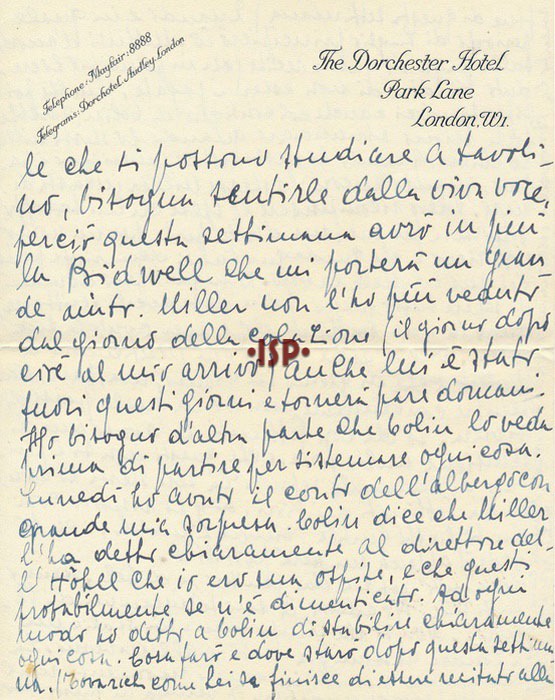 Telephone: Mayfair: 8888
Telegrams: Dorchotel, Audley, London
The Dorchester Hotel
Park Lane
London, W1.
le che si possono studiare a tavoli-
no, bisogna sentirle dalla viva voce,
perciò questa settimana avrò in più
la Bidwell che mi porterà un gran
de aiuto. Miller non l'ho più veduto
dal giorno della colazione (il giorno dopo
cioè al mio arrivo) Anche lui è stato
fuori questi giorni e tornerà pare domani.
Ho bisogno d'altra parte che Colin lo veda
prima di partire per sistemare ogni cosa.
Lunedì ho avuto il conto dell'albergo con
grande mia sorpresa. Colin dice che Miller
l'ha detto chiaramente al direttore del-
l'Hôtel che io ero suo ospite, e che questi
probabilmente se n'è dimenticato. Ad ogni
modo ho detto a Colin di stabilire chiaramente
ogni cosa. Cosa farò e dove starò dopo questa settima
na. come Lei sa finisce di essere recitato alla
·ISP·